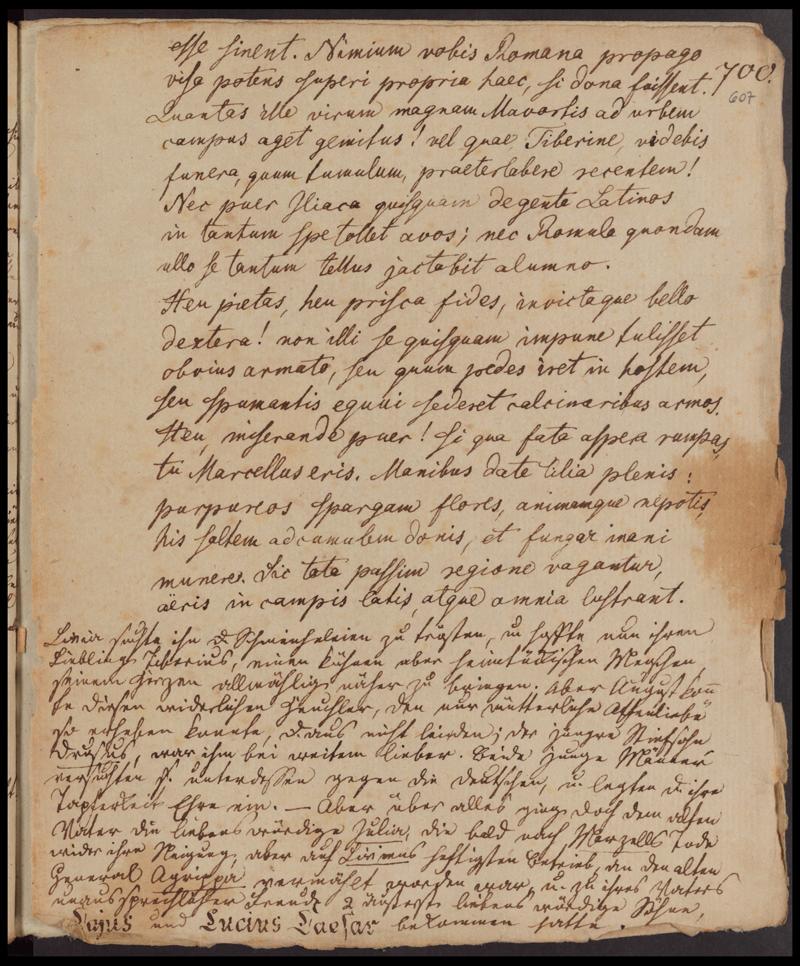 esse sinent. Nimium vobis Romana propago
visa potens superi propria haec, si dona fuissent. 700.
607
Quantas ille virum magnam Mavortis ad urbem
campus aget gemitus! vel quae, Tiberine, videbis
funera, quum tumulum, praeterlabere recentem!
Nec puer Iliaca quisquam de gente Latinos
in tantum spe tollet avos; nec Romula quondam
ullo se tantum tellus jactabit alumno.
Heu pietas, heu prisca fides, invictaque bello
dextera! non illi se quisquam impune tulisset
obvius armato, seu quum pedes iret in hostem,
seu spumantis equi sederet calcinaribus armos.
Heu, miserande puer! si qua fata aspera rumpas,
tu Marcellus eris. Manibus date lilia plenis:
purpureos spargam flores, animamque nepotis,
his saltem adcumulem donis, et fungar inani
munere. Sic tota passim regione vagantur,
aëris in campis latis, atque omnia lustrant.
Livia suchte ihn d. Schmeicheleien zu trösten, u. hoffte nun ihren
Liebling Tiberius, einen kühnen aber heimtückischen Menschen,
seinem Herzen allmählig näher zu bringen. Aber August konn
te diesen widerlichen Heuchler, den nur mütterliche Affenliebe
so erheben konnte, d.aus nicht leiden; der jüngre Stiefsohn
Drusus, war ihm bei weitem lieber. Beide junge Männer
versuchten s. unterdessen gegen die Deutschen, u. legten d. ihre
Tapferkeit Ehre ein. — Aber über alles ging doch dem alten
Vater die liebenswürdige Julia, die bald nach Marzells Tode
wider ihre Neigung, aber auf Liviens heftigsten Betrieb, an den alten
General Agrippa vermählt worden war, u. zu ihres Vaters
unaussprechlicher Freude 2 äusserst liebenswürdige Söhne,
Cajus und Lucius Caesar bekommen hatte.